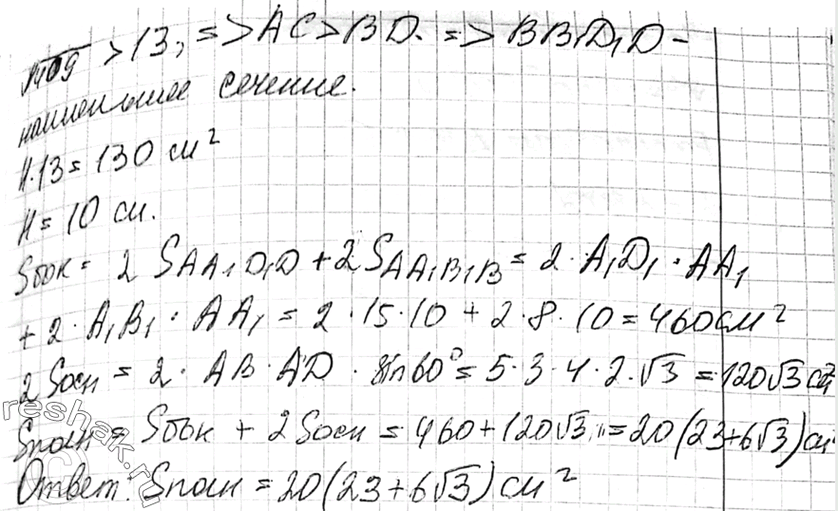 √409 > 13, => AC > BD. => BB₁D₁D -
наименьшее сечение.
H·13 = 130 см²
H = 10 см.
Sбок = 2 SAA₁D₁D + 2 SAA₁B₁B = 2 · A₁D₁ · AA₁
+ 2 · A₁B₁ · AA₁ = 2 · 15 · 10 + 2 · 8 · 10 = 460 см²
2 Sосн = 2 · AB · AD · sin 60° = 5 · 3 · 4 · 2 · √3 = 120√3 см²
Sполн = Sбок + 2 Sосн = 460 + 120√3 = 20(23+6√3) см
Ответ: Sполн = 20(23+6√3) см²
reshak.ru